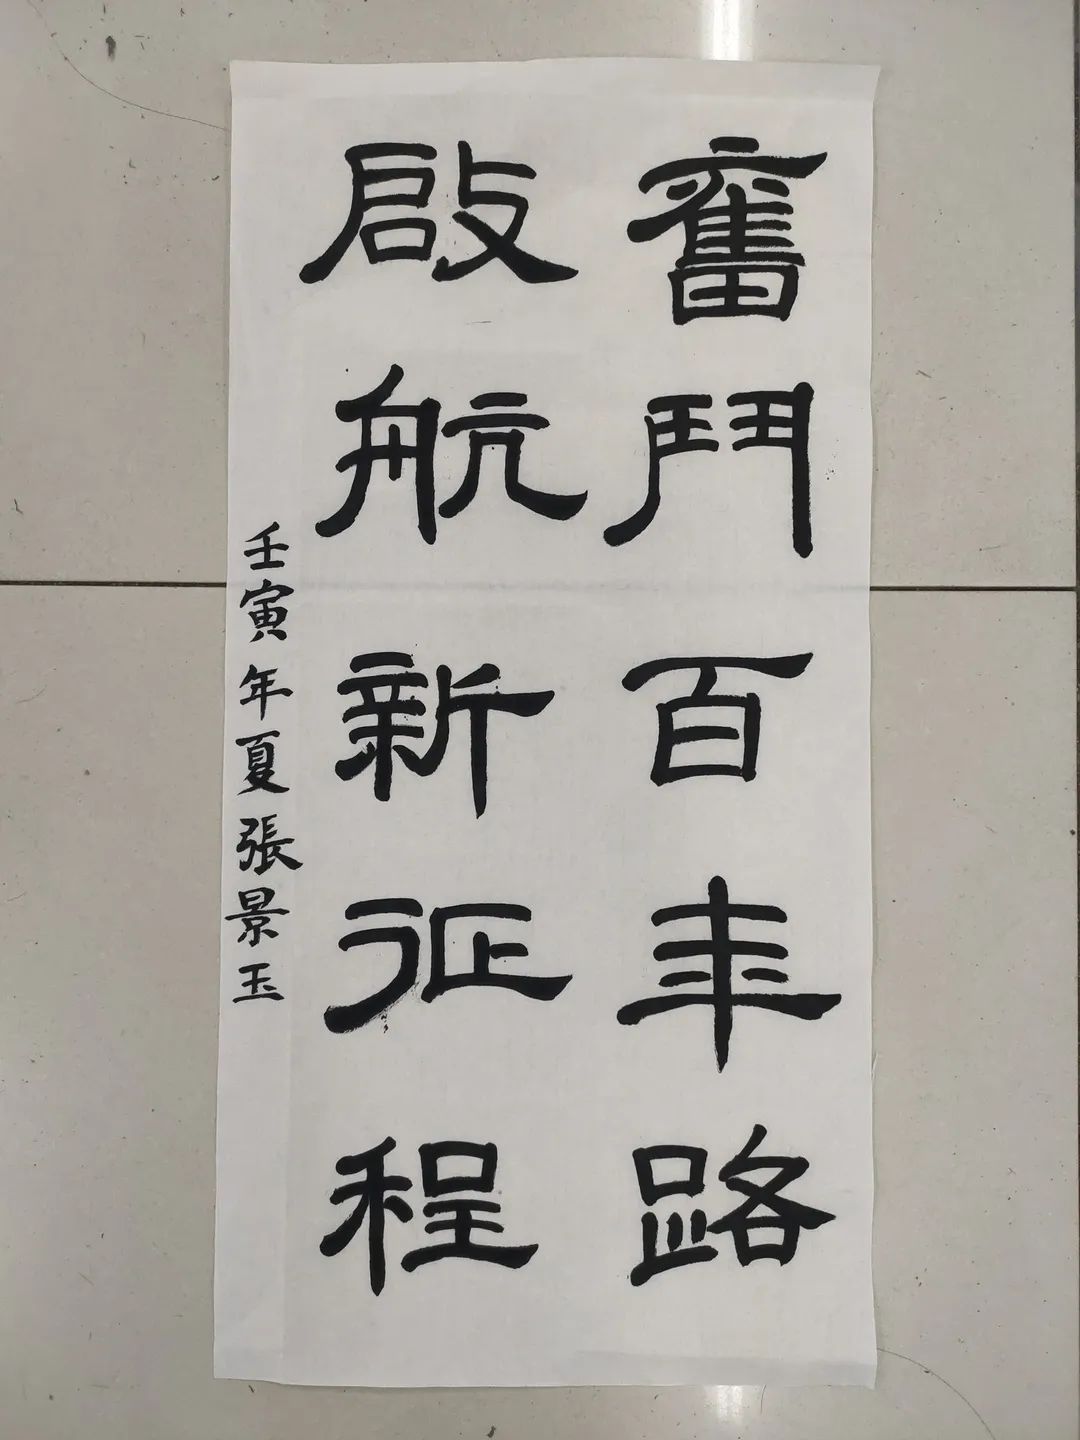 奮鬥百年路
啟航新征程
壬寅年夏張景玉